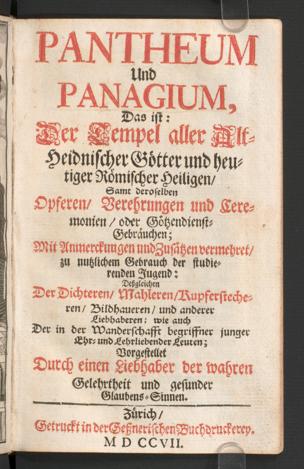 PANTHEUM
Und
PANAGIUM,
Das ist:
Der Tempel aller Alt-
Heidnischer Götter und heu-
tiger Römischer Heiligen/
Samt deroselben
Opferen/ Verehrungen und Cere-
monien/ oder Götzendienst-
Gebräuchen;
Mit Anmerckungen und Zusätzen vermehret/
zu nutzlichem Gebrauch der studie-
renden Jugend:
Deßgleichen
Der Dichteren/ Mahleren/ Kupfersteche-
ren/ Bildhaueren/ und anderer
Liebhaberen: wie auch
Der in der Wanderschafft begriffner junger
Ehr- und Lehrliebender Leuten;
Vorgestellet
Durch einen Liebhaber der wahren
Gelehrtheit und gesunder
Glaubens-Sinnen.
Zürich/
Getruckt in der Geßnerischen Buchdruckerey.
M D CCVII.